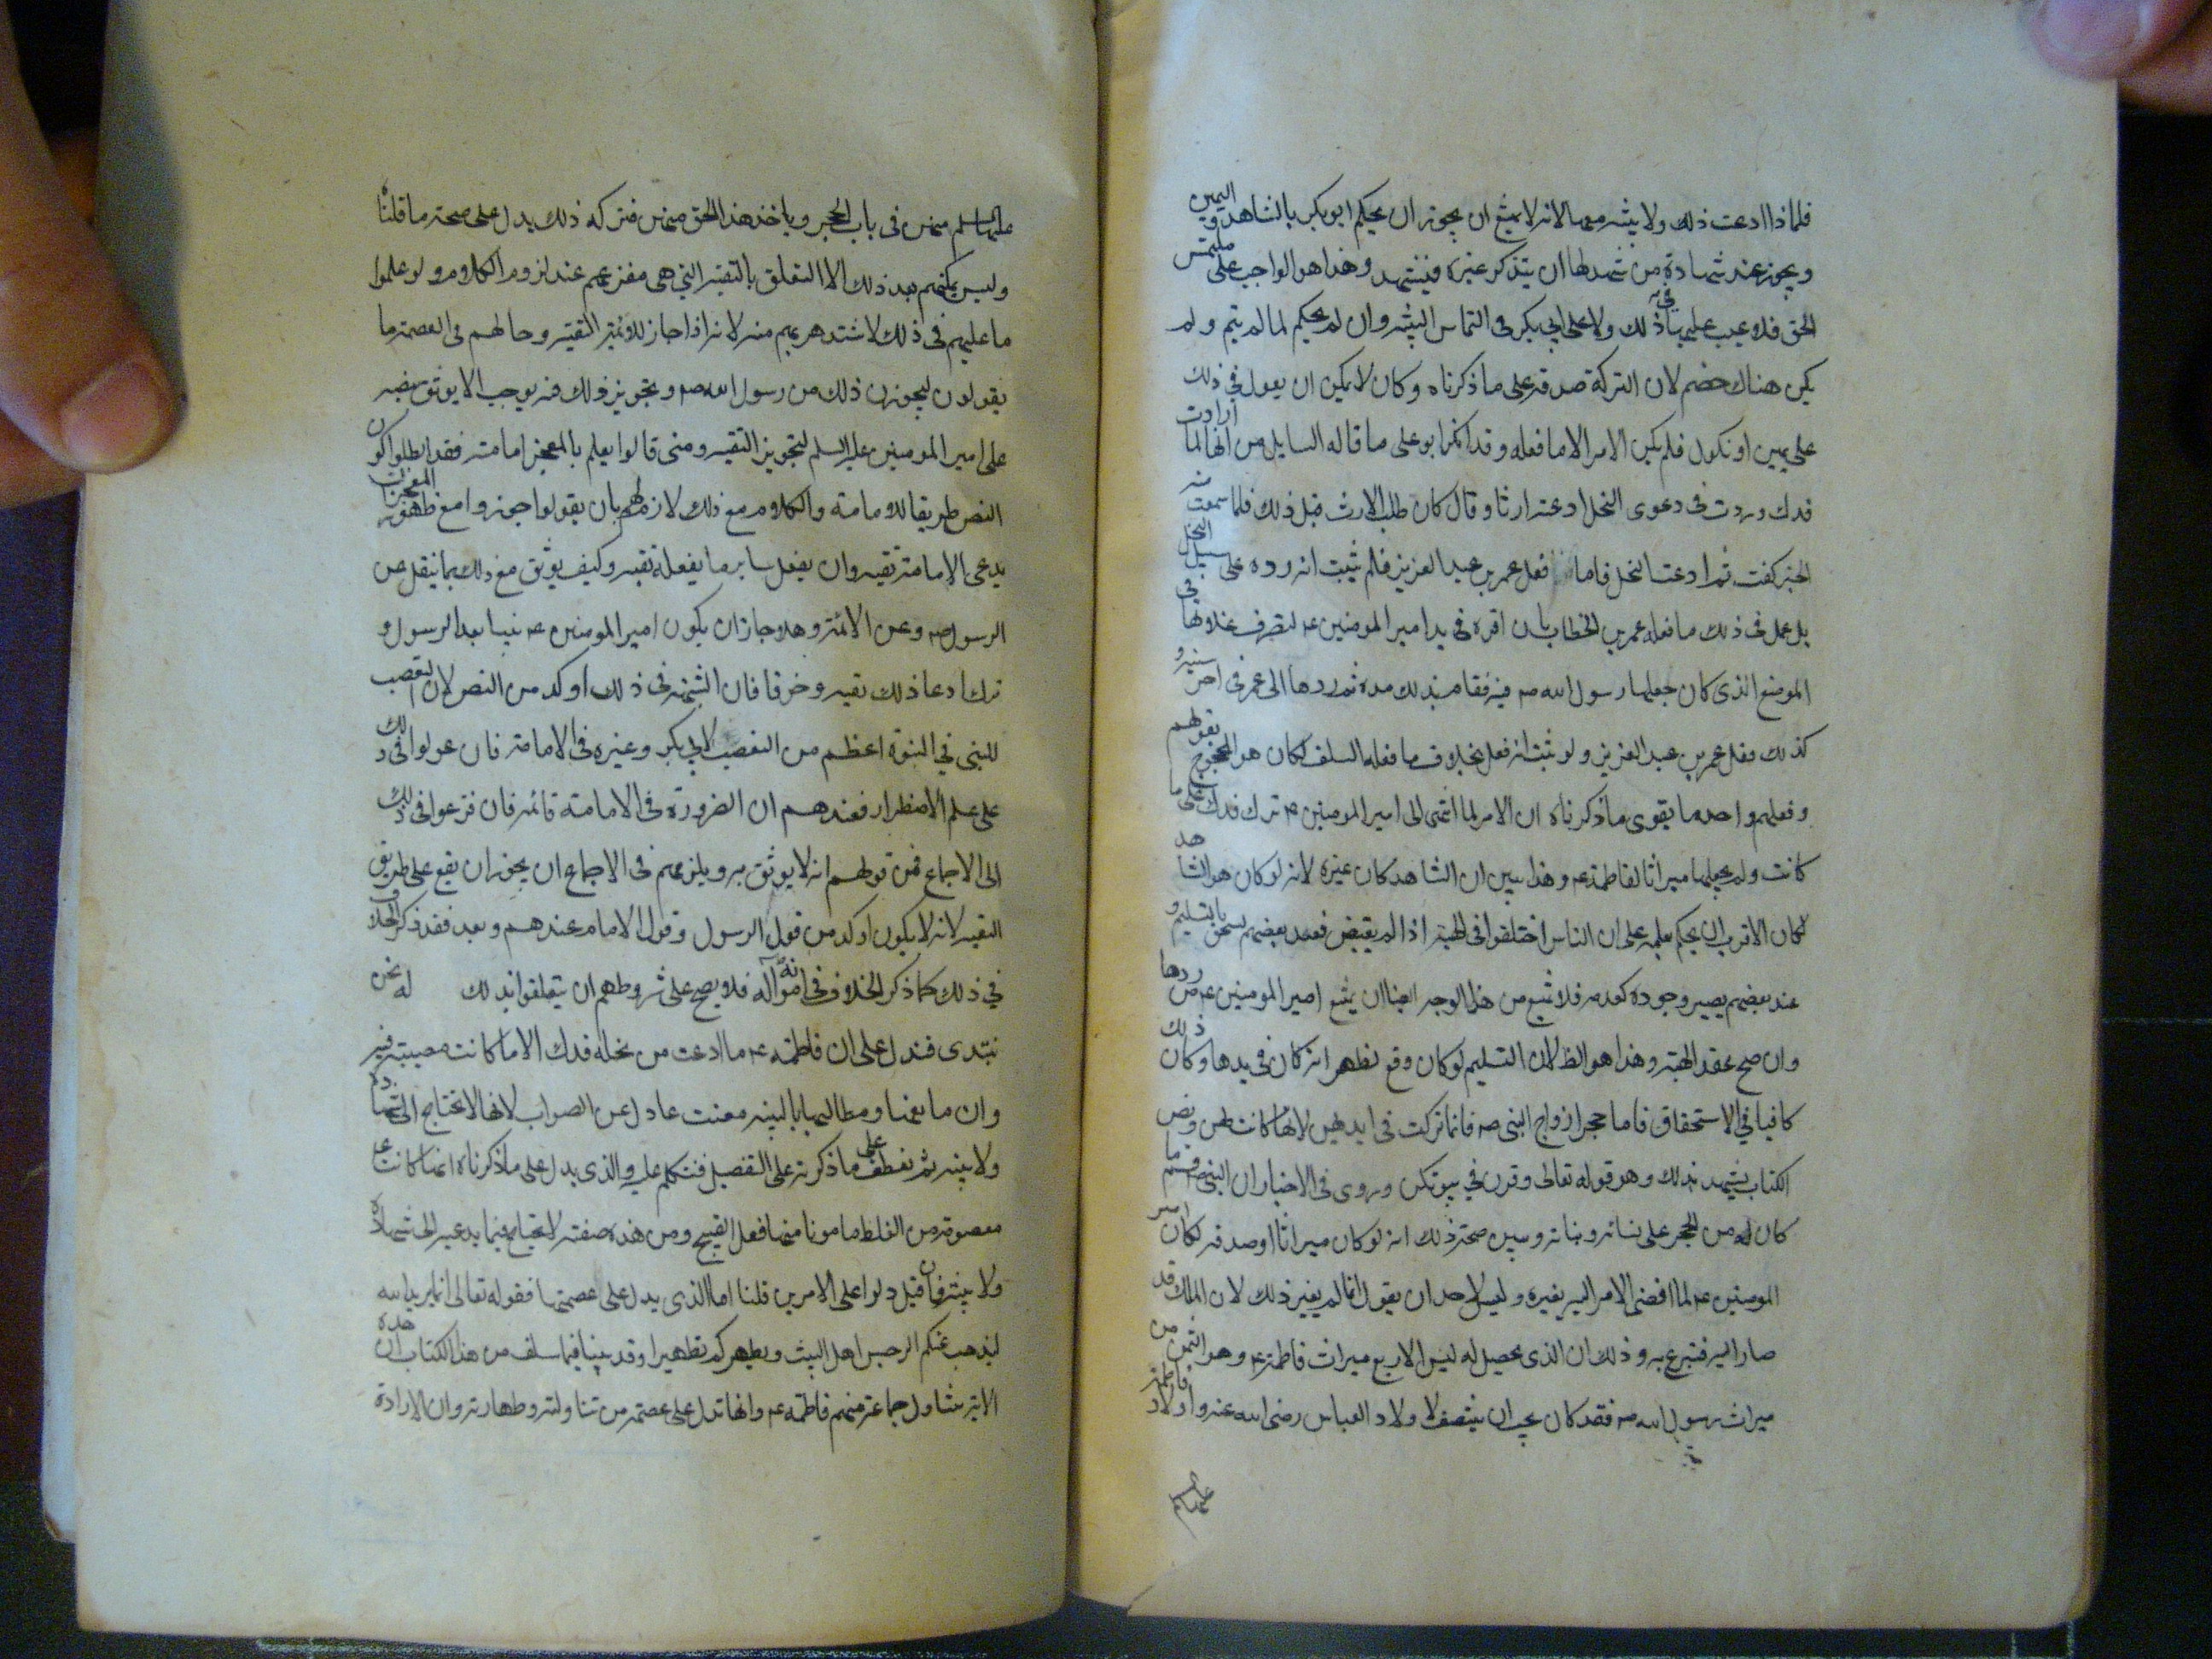 فلما ذا ادعت ذلك ولا بينه معها لانه لا يمتنع ان يجوز ان يحكم ابو بكر بالشاهد واليمين
ويجوز عند شهادة من شهد لها ان يتذكر غيره فيشهد وهذا هو الواجب على ملتمس
الحق فلا عيب عليها في ذلك ولا على ابي بكر في التماس البينه وان لم يحكم لما لم يتم ولم
يكن هناك خصم لان التركة صدقه على ما ذكرناه وكان لا يمكن ان يعول في ذلك
على يمين او نكول فلم يكن الامر الا ما فعله وقد انكر ابو على ما قاله السايل من انها لما ارادت
فدك وردت في دعوى النحل ادعته ارثا وقال كان طلب الارث قبل ذلك فلما سمعت منه
الخبر كفت ثم ادعت النحل فاما فعل عمر بن عبد العزيز فلم يثبت انه رده على سبيل النحل
بل عمل في ذلك ما فعله عمر بن الخطاب بان اقره في يد امير المومنين ع لتصرف غلاتها في
الموضع الذي كان جعلها رسول الله ص فيه فقام بذلك مدة ثم ردها الى عمر في اخر سنيه و
كذلك فعل عمر بن عبد العزيز ولو ثبت انه فعل بخلاف ما فعله السلف لكان هو المحجوج بقولهم
وفعلهم واحد ما يقوى ما ذكرناه ان الامر لما انتهى الى امير المومنين ع ترك فدك على ما
كانت ولم يجعلها ميراثا لفاطمة ع وهذا يبين ان الشاهد كان غيره لانه لو كان هو الشاهد
لكان الاقرب ان يحكم بعلمه على ان الناس اختلفوا في الهبة اذا لم يقبض فعند بعضهم يستحق بالتسليم و
عند بعضهم يصير وجوده كعدمه فلا يمتنع من هذا الوجه ايضا ان يمتنع امير المومنين ع من ردها
وان صح عقد الهبة وهذا هو الظ لان التسليم لو كان وقع لظهر انه كان في يدها وكان ذلك
كافيا في الاستحقاق فاما حجر ازواج النبي ص فانما تركت في ايديهن لانها كانت لهن ونص
الكتاب يشهد بذلك وهو قوله تعالى وقرن في بيوتكن وروى في الاخبار ان النبي ص قسم ما
كان له من الحجر على نسائه وبناته ويبين صحة ذلك انه لو كان ميراثا او صدقه لكان امير
المومنين ع لما افضى الامر اليه يغيره وليس لاحد ان يقول انما لم يغير ذلك لان الملك قد
صار اليه فتبرع به وذلك ان الذي يحصل له ليس الا ربع ميراث فاطمة ع وهو الثمن من
ميراث رسول الله ص فقد كان يجب ان ينتصف لاولاد العباس رضي الله عنه واولاد فاطمة
عليها سلم منهن في باب الحجر وياخذ هذا الحق منهن فتركه ذلك يدل على صحة ما قلناه
وليس يمكنهم بعد ذلك الا التعلق بالتقيه التي هي مفزعهم عند لزوم الكلام ولو علموا
ما عليهم في ذلك لاشتد هربهم منه لانه اذا جاز للائمة التقيه وحالهم في العصمة ما
يقولون ليجوزن ذلك من رسول الله ص وتجويز ذلك فيه يوجب الا يوثق بنصه
على امير المومنين عليه السلم لتجويز التقيه ومتى قالوا يعلم بالمعجز امامته فقد ابطلوا كون
النص طريقا للامامة والكلام مع ذلك لازم لهم بان يقولوا جوزوا مع ظهور المعجزات
يدعى الامامة تقيه وان يفعل ساير ما يفعله تقيه وكيف يوثق مع ذلك بما ينقل عن
الرسول ص وعن الائمة وهلا جاز ان يكون امير المومنين ع نبيا بعد الرسول و
ترك ادعا ذلك تقيه وخوفا فان الشبهة في ذلك اوكد من النص لان التعصب
للنبي في النبوة اعظم من التعصب لابي بكر وغيره في الامامة فان عولوا في ذلك
على علم الاضطرار فعندهم ان الضرورة في الامامة قائمة فان فزعوا في ذلك
الى الاجماع فمن قولهم انه لا يوثق به ويلزمهم في الاجماع ان يجوز ان يقع على طريق
التقيه لانه لا يكون اوكد من قول الرسول وقول الامام عندهم وبعد فقد ذكر الخلاف
في ذلك كما ذكر الخلاف في انه اله فلا يصح على شروطهم ان يتعلقوا بذلك له نحن
نبتدى فندل على ان فاطمة ع ما ادعت من نحله فدك الا ما كانت مصيبة فيه
وان مانعها ومطالبها بالبينه متعنت عادل عن الصواب لانها لا تحتاج الى شهادة
ولا بينه ثم نعطف على ما ذكرته على التفصيل فنتكلم عليه والذي يدل على ما ذكرناه انها كانت ع
معصومة من الغلط مامونا منها فعل القبيح ومن هذه صفته لا يحتاج فيما يدعيه الى شهادة
ولا بينة فان قيل دلوا على الامرين قلنا اما الذي يدل على عصمتها فقوله تعالى انما يريد الله
ليذهب عنكم الرجس اهل البيت ويطهركم تطهيرا وقد بينا فيما سلف من هذا الكتاب ان هذه
الاية تتناول جماعة منهم فاطمة ع وانها تدل على عصمة من تناولته وطهارته وان الارادة